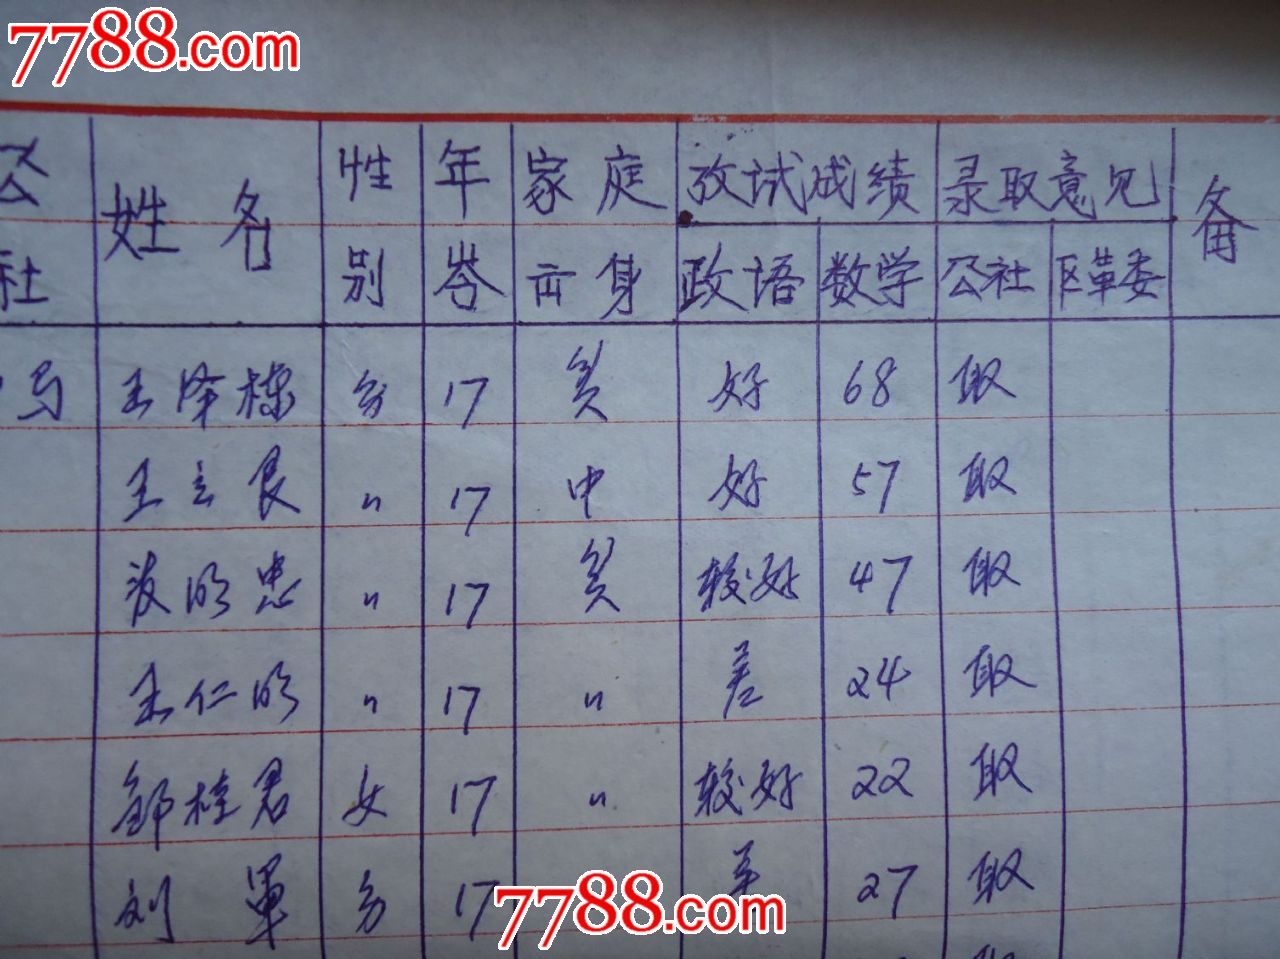 7788.com
7788.com
公社 姓名 性别 年岺 家庭出身 攷试成绩 录取意见 备
政语 数学 公社 区革委
马 王泽栋 男 17 贫 好 68 取
王立良 〃 17 中 好 57 取
明忠 〃 17 贫 较好 47 取
王仁明 〃 17 〃 差 24 取
邹桂君 女 17 〃 较好 22 取
刘军 男 17 27 取
7788.com
取